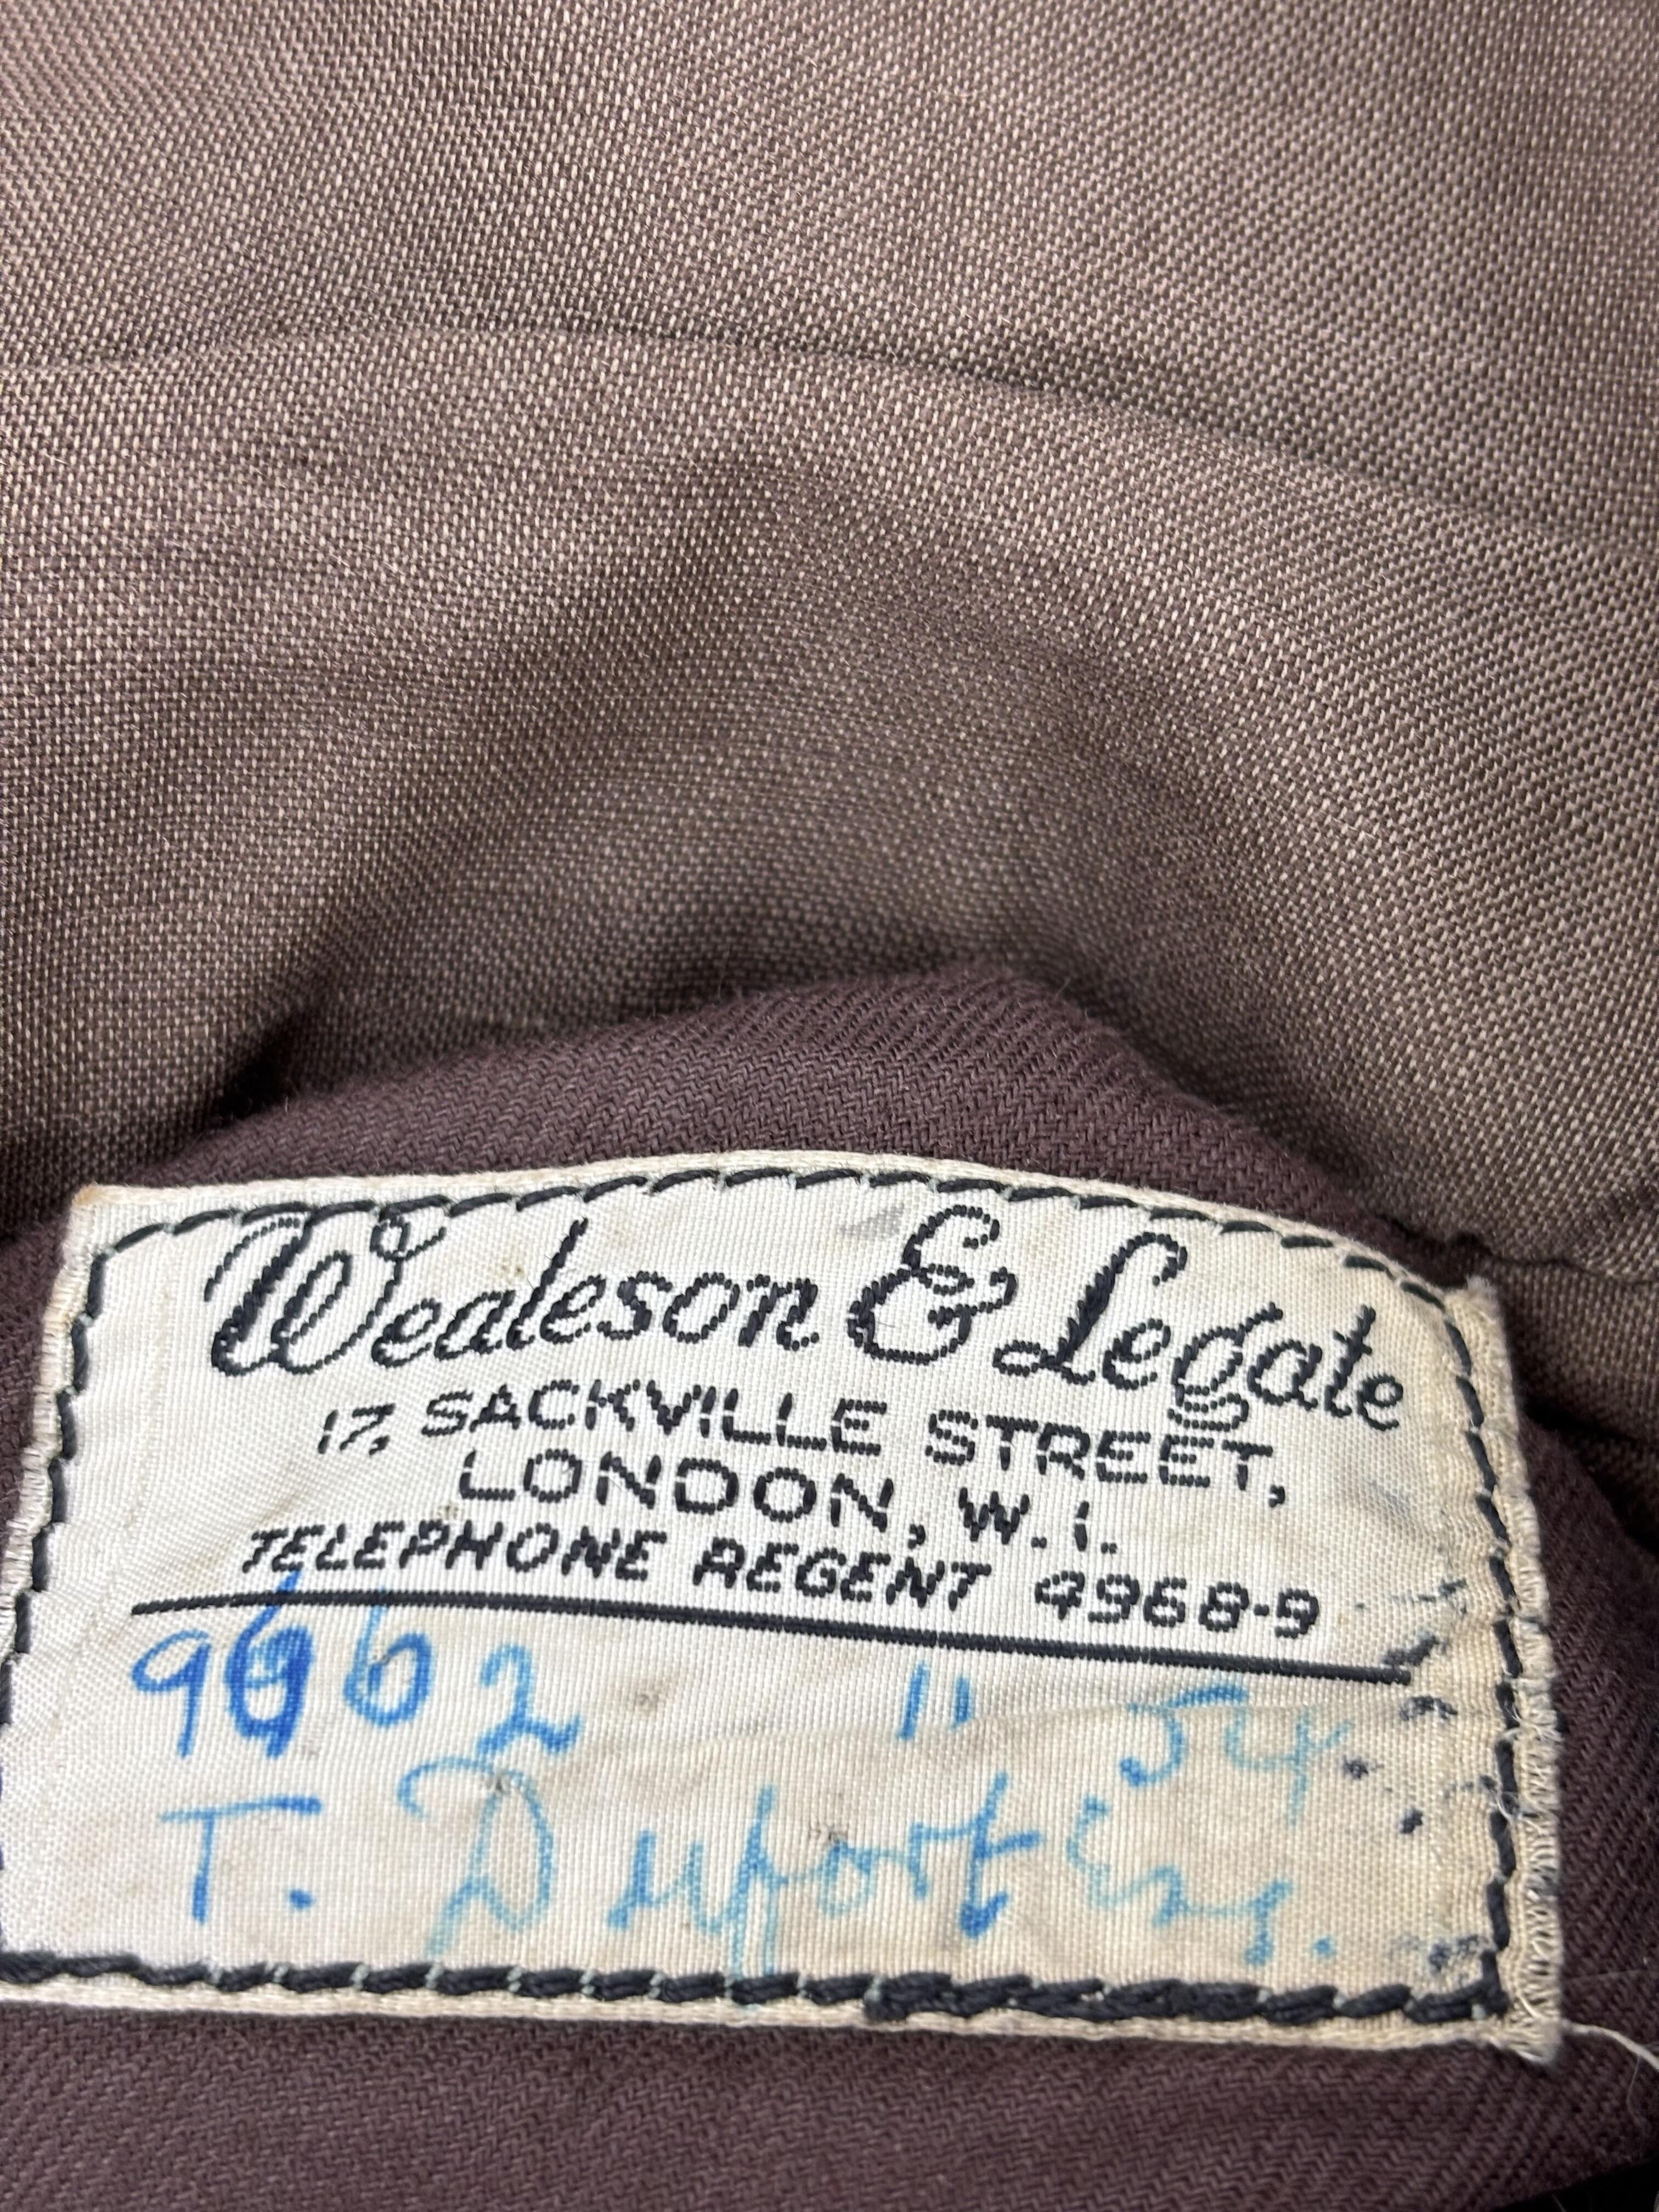 Wealeson & Legate
17, SACKVILLE STREET,
LONDON, W.1.
TELEPHONE REGENT 4968-9
9662 " 54
T. Duport Esq.